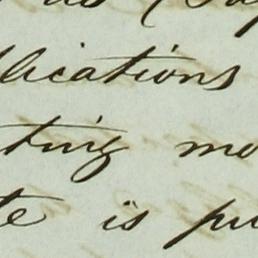 lications
ting mo
te is pu